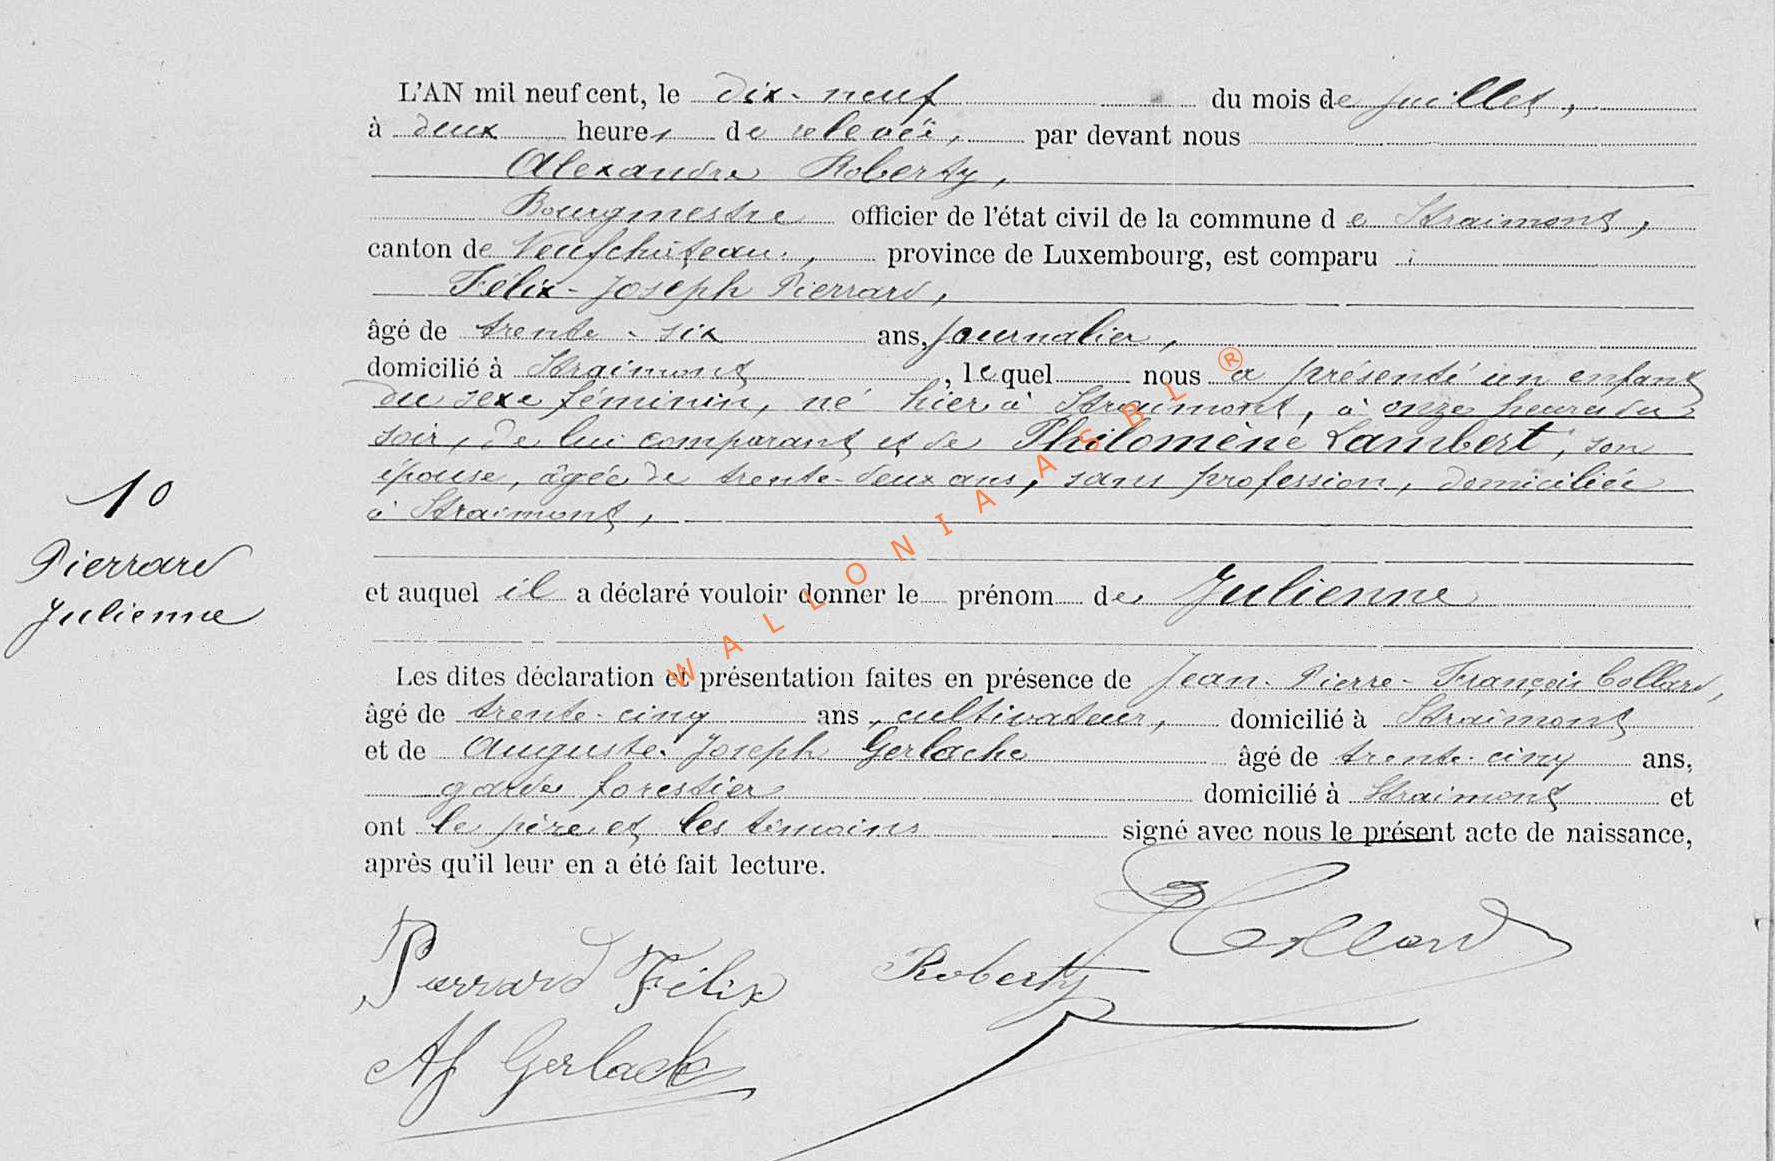 L'AN mil neuf cent, le dix-neuf du mois de juillet,
à deux heures de relevée, par devant nous
Alexandre Roberty,
Bourgmestre officier de l'état civil de la commune de Straimont,
canton de Neufchâteau, province de Luxembourg, est comparu :
Félix-Joseph Pierrard,
âgé de trente-six ans, journalier,
domicilié à Straimont, lequel nous a présenté un enfant
du sexe féminin, né hier à Straimont, à onze heures du
soir, de lui comparant et de Philomène Lambert, son
épouse, âgée de trente-deux ans, sans profession, domiciliée
à Straimont,
10
Pierrard
Julienne
et auquel il a déclaré vouloir donner le prénom de Julienne
Les dites déclaration et présentation faites en présence de Jean-Pierre-François Collard,
âgé de trente-cinq ans, cultivateur, domicilié à Straimont
et de Auguste-Joseph Gerlache âgé de trente-cinq ans,
garde forestier domicilié à Straimont et
ont le père et les témoins signé avec nous le présent acte de naissance,
après qu'il leur en a été fait lecture.
Pierrard Félix Roberty Collard
AJ Gerlache
WALLONIA ASBL ®